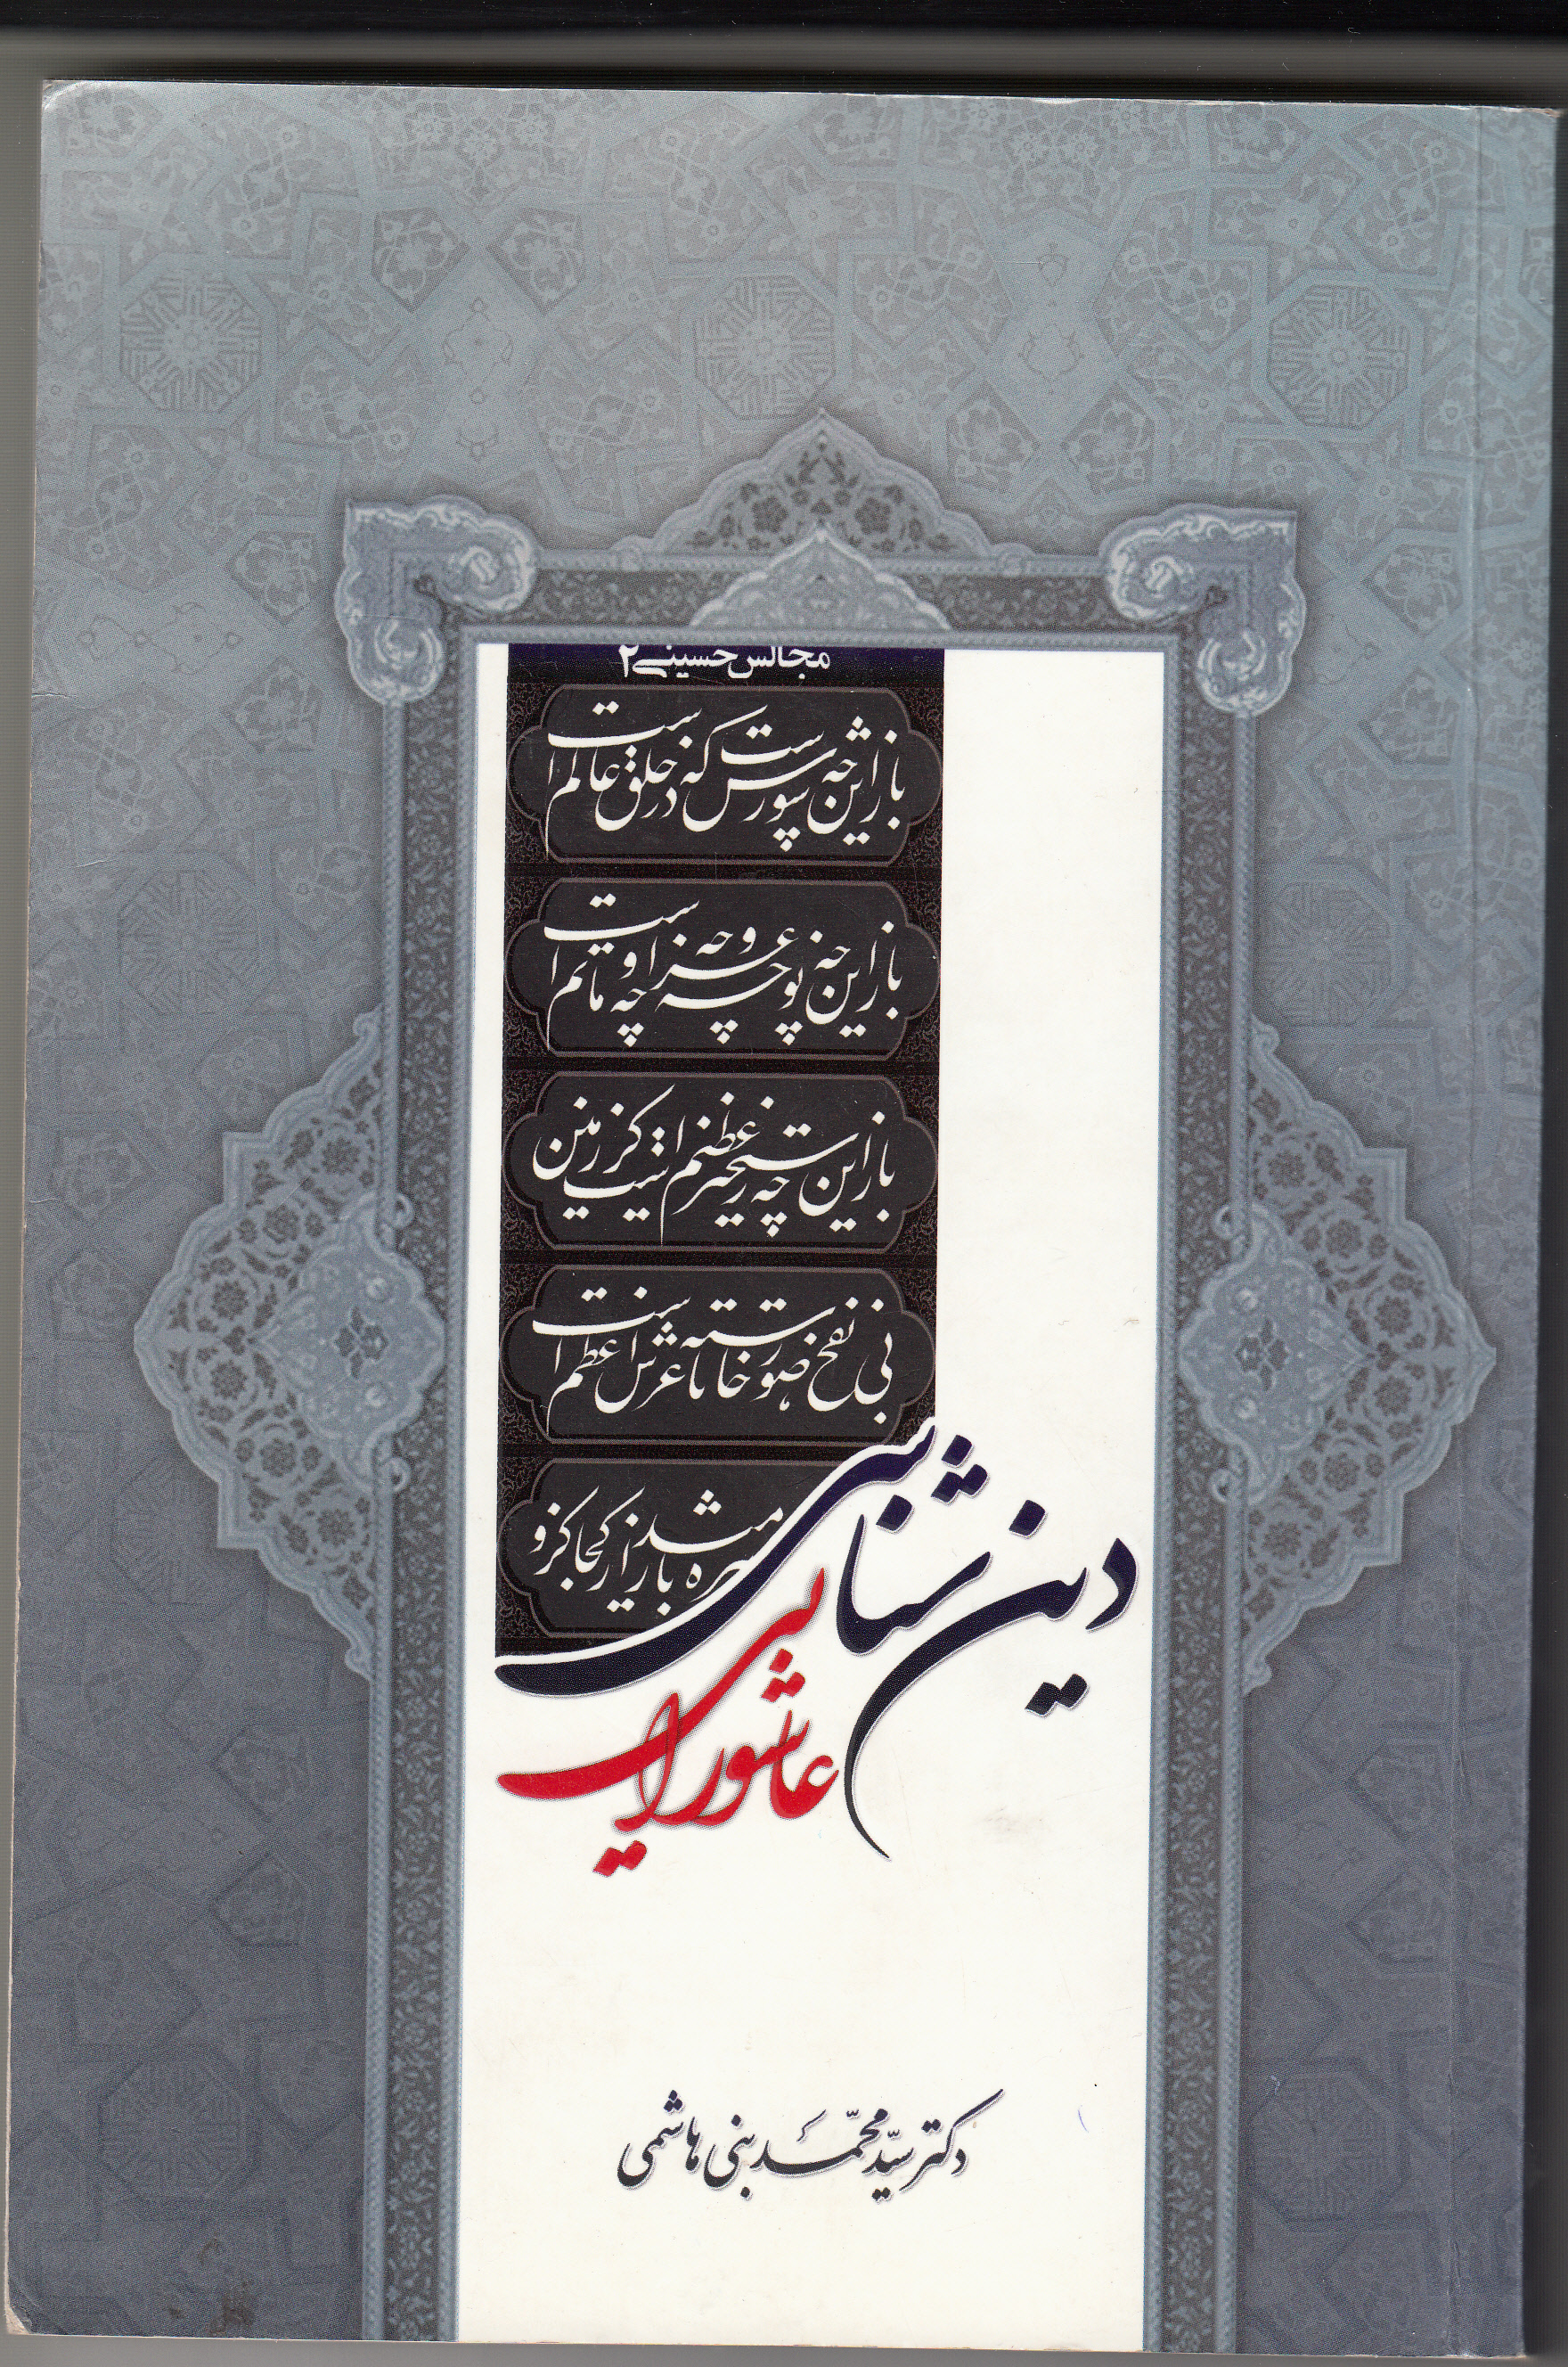 مجالس حسینی ۲
باز این چه شورش است که در خلق عالم است
باز این چه نوحه و چه عزا و چه ماتم است
باز این چه رستخیز عظیم است کز زمین
بی نفخ صور خاسته تا عرش اعظم است
تیره باز از کجا کزو
دین شناسی
عاشورایی
دکتر سیّد محمّد بنی هاشمی